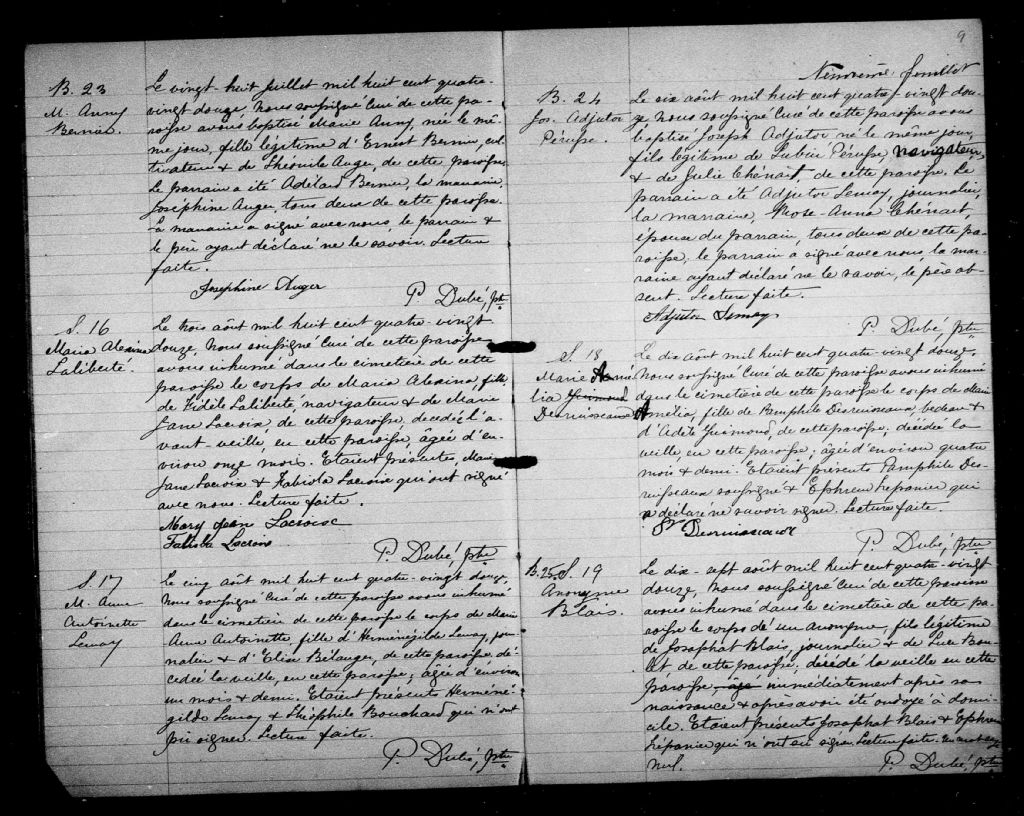 B. 23
M. Anny
Bernier.
Le vingt-huit juillet mil huit cent quatre-
vingt douze, Nous soussigné Curé de cette pa-
roisse avons baptisé Marie Anny, née le mê-
me jour, fille légitime d'Ernest Bernier, cul-
tivateur & de Théonile Auger, de cette paroisse.
Le parrain a été Adélard Bernier, la marraine,
Joséphine Auger, tous deux de cette paroisse.
La marraine a signé avec nous, le parrain &
le père ayant déclaré ne le savoir. Lecture
faite.
Josephine Auger
P. Dubé, Ptre
S. 16
Maria Alexina
Laliberté.
Le trois août mil huit cent quatre-vingt
douze, Nous soussigné Curé de cette paroisse
avons inhumé dans le cimetière de cette
paroisse le corps de Maria Alexina, fille
de Fidèle Laliberté, navigateur & de Marie
Jane Lacroix de cette paroisse, decédé l'a-
vant-veille, en cette paroisse, âgée d'en-
viron onze mois. Etaient présentes, Marie
Jane Lacroix & Fabiola Lacroix qui ont signé
avec nous. Lecture faite.
Mary Jean Lacroix
Fabiola Lacroix
P. Dubé, Ptre
S. 17
M. Anne
Antoinette
Lemay
Le cinq août mil huit cent quatre-vingt douze,
Nous soussigné Curé de cette paroisse avons inhumé
dans le cimetière de cette paroisse le corps de Marie
Anne Antoinette fille d'Herménégilde Lemay, jour-
nalier & d'Elise Bélanger, de cette paroisse, dé-
cédée la veille, en cette paroisse, âgée d'environ
un mois & demi. Etaient présents Herméné-
gilde Lemay & Théophile Bouchard qui n'ont
pu signer. Lecture faite.
P. Dubé, Ptre
9
Neuvième feuillet
B. 24
Jos. Adjutor
Pérusse.
Le six août mil huit cent quatre-vingt dou-
ze Nous soussigné Curé de cette paroisse avons
baptisé Joseph Adjutor né le même jour,
fils légitime de Lubin Pérusse, navigateur,
& de Julie Chénart, de cette paroisse. Le
parrain a été Adjutor Lemay, journalier,
la marraine, Rose-Anna Chénart,
épouse du parrain, tous deux de cette pa-
roisse; le parrain a signé avec nous, la mar-
raine ayant déclaré ne le savoir, le père ab-
sent. Lecture faite.
Adjutor Lemay
P. Dubé, Ptre
S. 18
Marie Amé
lia Guimond
Desruisseaux
Le dix août mil huit cent quatre-vingt douze,
Nous soussigné Curé de cette paroisse avons inhumé
dans le cimetière de cette paroisse le corps de Marie
Amélia, fille de Pamphile Desruisseaux, bedeau &
d'Adèle Guimond, de cette paroisse; décédée la
veille, en cette paroisse; âgée d'environ quatre
mois & demi. Etaient présents Pamphile Des-
ruisseaux soussigné & Ephrem Lépanier qui
a déclaré ne savoir signer. Lecture faite.
Desruisseaux
P. Dubé, Ptre
B. 25. S. 19
Anonyme
Blais.
Le dix-sept août mil huit cent quatre-vingt
douze, Nous soussigné Curé de cette paroisse
avons inhumé dans le cimetière de cette pa-
roisse le corps d'un anonyme, fils légitime
de Josaphat Blais, journalier & de Luce Bou-
let de cette paroisse; décédé la veille en cette
paroisse âgé immédiatement après sa
naissance & après avoir été ondoyé à domi-
cile. Etaient présents Josaphat Blais & Ephrem
Lépanier qui n'ont su signer. Lecture faite.
nul.
P. Dubé, Ptre